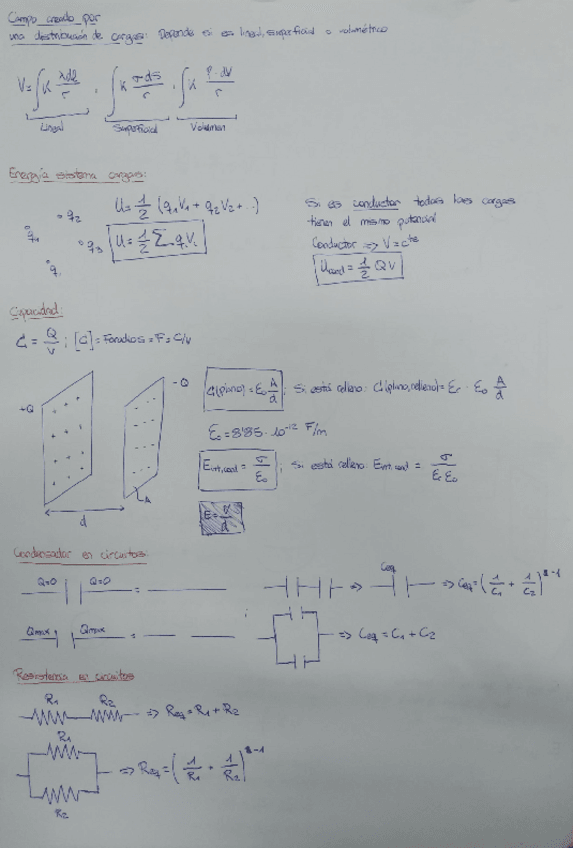 Campo creado por
una distribución de cargas: Depende si es lineal, superficial o volumétrico
V = ∫ K λdl/r , ∫ K σ·ds/r , ∫ K ρ·dV/r
Lineal Superficial Volumen
Energía sistema cargas:
q1 q2 q3 q
U = 1/2 (q1V1 + q2V2 + ...)
U = 1/2 Σ qi Vi
Si es conductor todas las cargas
tienen el mismo potencial
Conductor => V = cte
Ucond = 1/2 QV
Capacidad:
C = Q/V ; [C] = Faradios = F = C/V
+Q -Q
A
d
C(plano) = ε0 A/d ; Si está relleno: C(plano, relleno) = εr · ε0 A/d
ε0 = 8'85 · 10^-12 F/m
Eint, cond = σ/ε0 ; Si está relleno Eint, cond = σ/εr ε0
E = V/d
Condensador en circuitos:
Q=0 Q=0 =
Ceq
=> => Ceq = (1/C1 + 1/C2)^-1
Qmax Qmax =
=> Ceq = C1 + C2
Resistencia en circuitos
R1 R2 => Req = R1 + R2
R1
=> Req = (1/R1 + 1/R2)^-1
R2